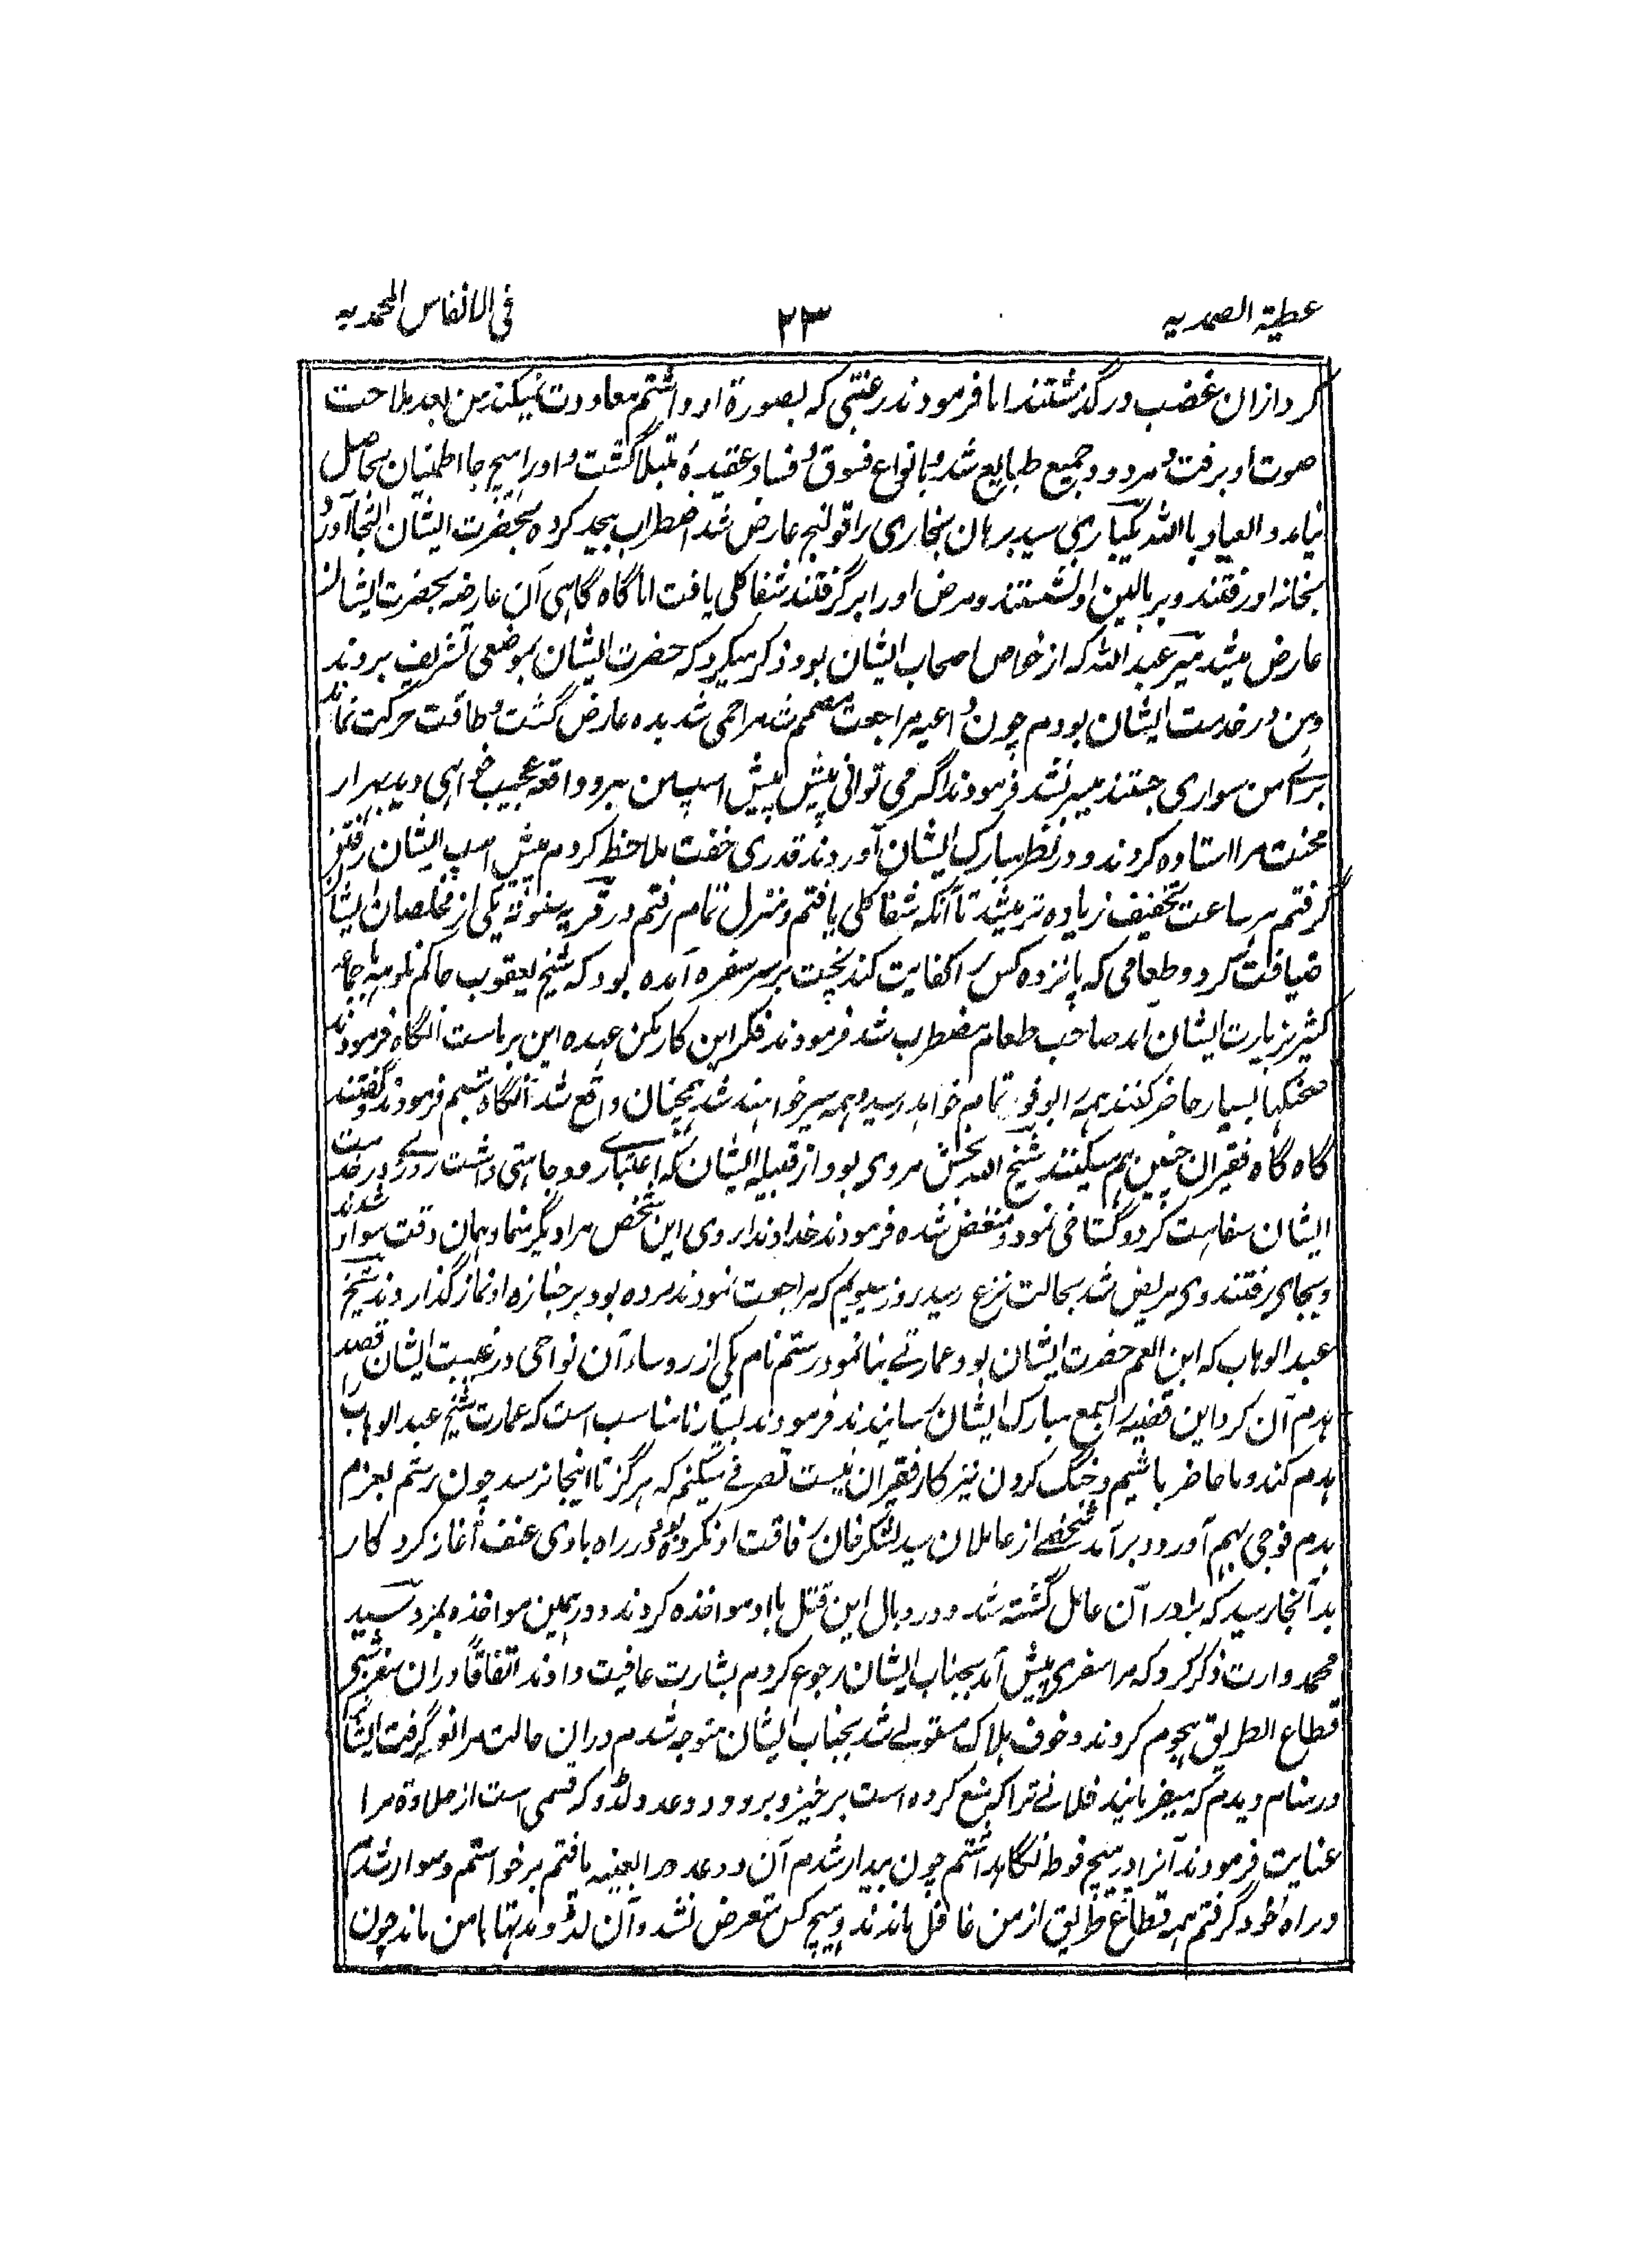 عطیة الصمدیه ۲۳ فی الانفاس المحمدیه
کرد ازان غضب در گذشتند اما فرمودند رغبتی که بصورة او داشتم معاودت نمیکند من بعد ملاحت
صوت او برفت و مردود جمیع طبایع شد و بانواع فسوق و فساد عقیده مبتلا گشت و او را هیچ جا اطمنان حاصل
نیامد و العیاذ باالله یکباری سید برهان بخاری را قولنج عارض شد اضطراب بیحد کرده بحضرت ایشان التجا آورد
بخانه او رفتند و بر بالین او نشستند و مرض او را برگرفتند شفا کلی یافت اما گاه گاهی آن عارضه بحضرت ایشان
عارض میشد میر عبد الله که از خواص اصحاب ایشان بود ذکر میکرد که حضرت ایشان بموضعی تشریف بردند
و من در خدمت ایشان بودم چون داعیه مراجعت مصمم شد مرا حمی شدیده عارض گشت و طاقت حرکت نماند
برای من سواری جستند میسر نشد فرمودند اگر می توانی پیش پیش اسپ من برو واقعه عجیب خواهی دید بهزار
محنت مرا استاده کردند و در نظر مبارک ایشان آوردند قدری خفت ملاحظ کردم پیش اسپ ایشان رفتن
گرفتم هر ساعت تخفیف زیاده تر میشد تا آنکه شفا کلی یافتم و منزل تمام رفتم در قریه یکی از مخلصان ایشان
ضیافت کرد و طعامی که پانزده کس را کفایت کند پخت بر سر سفره آمده بود که شیخ یعقوب حاکم با جماعه
کثیر بزیارت ایشان آمد صاحب طعام مضطرب شد فرمودند فکر این کار مکن عهده این بر ماست انگاه فرمودند
صحنکها بسیار حاضر کنند همه تمام خواهد رسید و همه سیر خواهند شد همچنان واقع شد آنگاه تبسم فرمودند و گفتند
گاه گاه فقیران چنین هم میکنند شیخ الله بخش مردی بود از قبیله ایشان که اعتباری و وجاهتی داشت روزی در خدمت
ایشان سفاهت کرد و گستاخی نمود و منغض شده فرمودند خداوندا روی این شخص مرا دیگر منما و همان وقت سوار شدند
و بجای رفتند وی مریض شد بحالت نزع رسید روز سیوم که مراجعت نمودند مرده بود بر جنازه او نماز گذاردند شیخ
عبد الوهاب که ابن العم حضرت ایشان بود عمارتی بنا نمود رستم نام یکی از روساء آن نواحی در غیبت ایشان قصد
هدم آن کرد این قضیه را بسمع مبارک ایشان رسانیدند فرمودند بسیار نامناسب است که عمارت شیخ عبد الوهاب را
هدم کند و ما حاضر باشیم و جنگ کردن نیز کار فقیران نیست تصرفی میکنم که هرگز تا اینجا نرسد چون رستم بعزم
هدم فوجی بهم آورد و بر آمد شخصی از عاملان سید لشکر خان رفاقت او نکرده بود در راه با وی عنف آغاز کرد کار
بدانجا رسید که برادر آن عامل کشته شد و در وبال این قتل با او مواخذه کردند و در همین مواخذه بمرد سید
محمد وارث ذکر کرد که مرا سفری پیش آمد بجناب ایشان رجوع کردم بشارت عافیت دادند اتفاقاً دران سفر شبی
قطاع الطریق هجوم کردند و خوف هلاک مستولی شد بجناب ایشان متوجه شدم دران حالت مرا گرفت ایشان
در منام دیدم که میفرمایند فلانی ترا که منع کرده است برخیز و برو و دو عدد لڈو که قسمی است از حلاوة مرا
عنایت فرمودند آنرا در پیچ فوطه نگاهداشتم چون بیدار شدم آن دو عدد را بعینه یافتم برخواستم و سوار شدم
و راه خود گرفتم همه قطاع طریق از من غافل ماندند و هیچ کس متعرض نشد و آن لڈو مدتها با من ماند چون